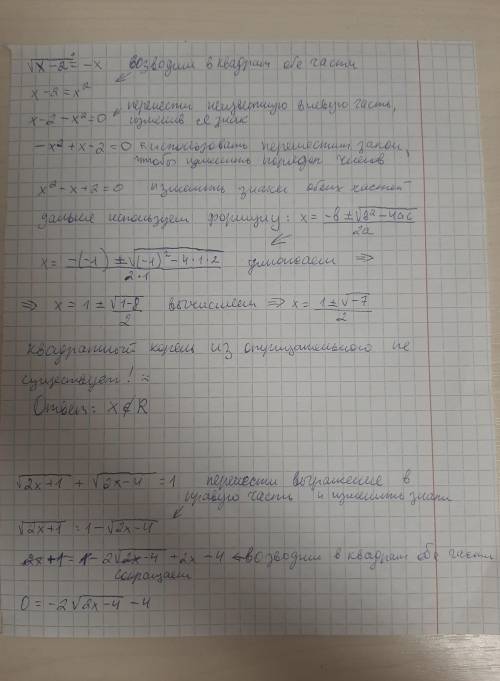 √x-2 = -x возводим в квадрат обе части
x-2 = x²
x-2-x²=0 перенести неизвестную в левую часть,
изменив её знак
-x²+x-2=0 использовать переместит. закон,
чтобы изменить порядок членов
x²-x+2=0 изменить знаки обеих частей
дальше используем формулу: x = -b±√b²-4ac / 2a
x = -(-1)±√(-1)²-4·1·2 / 2·1 умножаем ⇒
⇒ x = 1±√1-8 / 2 вычисляем ⇒ x = 1±√-7 / 2
квадратный корень из отрицательного не
существует! ⇒
Ответ: x∉R
√2x+1 + √2x-4 = 1 перенести выражение в
правую часть и изменить знаки
√2x+1 = 1-√2x-4
2x+1 = 1-2√2x-4 + 2x-4 ← возводим в квадрат обе части
сокращаем
0 = -2√2x-4 - 4